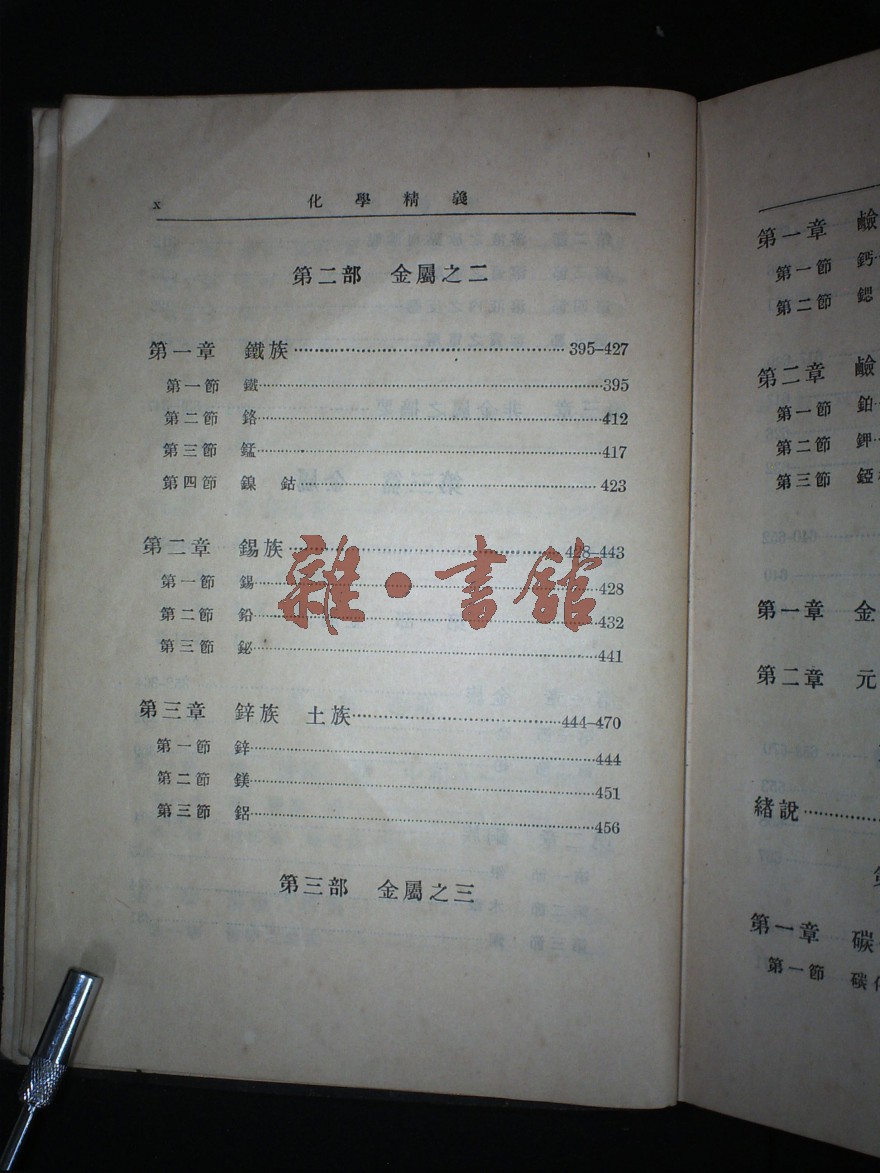 x 化學精義
第二部 金屬之二
第一章 鐵族……395–427
第一節 鐵……395
第二節 鉻……412
第三節 錳……417
第四節 鎳 鈷……423
第二章 錫族……428–443
第一節 錫……428
第二節 鉛……432
第三節 鉍……441
第三章 鋅族 土族……444–470
第一節 鋅……444
第二節 鎂……451
第三節 鋁……456
第三部 金屬之三
雜·書館
第一章 鹼
第一節 鈣
第二節 鍶
第二章 鹼
第一節 鉑
第二節 鉀
第三節 錏
第一章 金
第二章 元
緒說……
第一章 碳
第一節 碳化